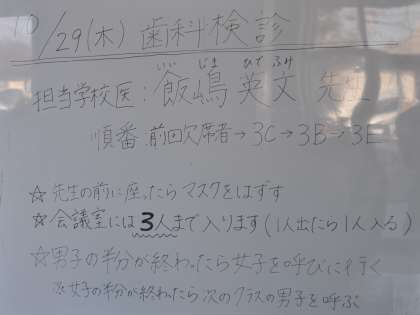 10/29(木) 歯科検診
いい じま ひで ふみ
担当学校医:飯嶋 英文 先生
順番 前回欠席者→3C→3B→3E
☆ 先生の前に座ったらマスクをはずす
☆ 会議室には3人まで入ります(1人出たら1人入る)
☆ 男子の半分が終わったら女子を呼びに行く
※女子の半分が終わったら次のクラスの男子を呼ぶ